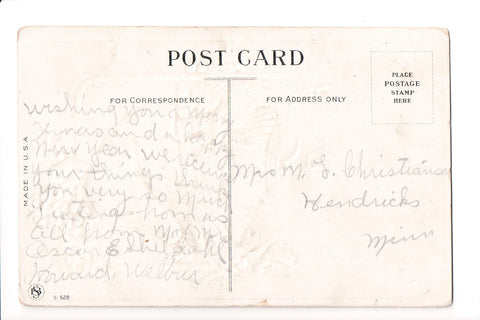 POST CARD
FOR CORRESPONDENCE
FOR ADDRESS ONLY
PLACE
POSTAGE
STAMP
HERE
MADE IN U.S.A
wishing you a Mery
Xmas and a happy
New Year we receiv
your things thank
you very to Much
from us
all from Mr Mrs
Oscar
Howard,
Mrs M. L. Christianson
Hendricks
Minn
S 620